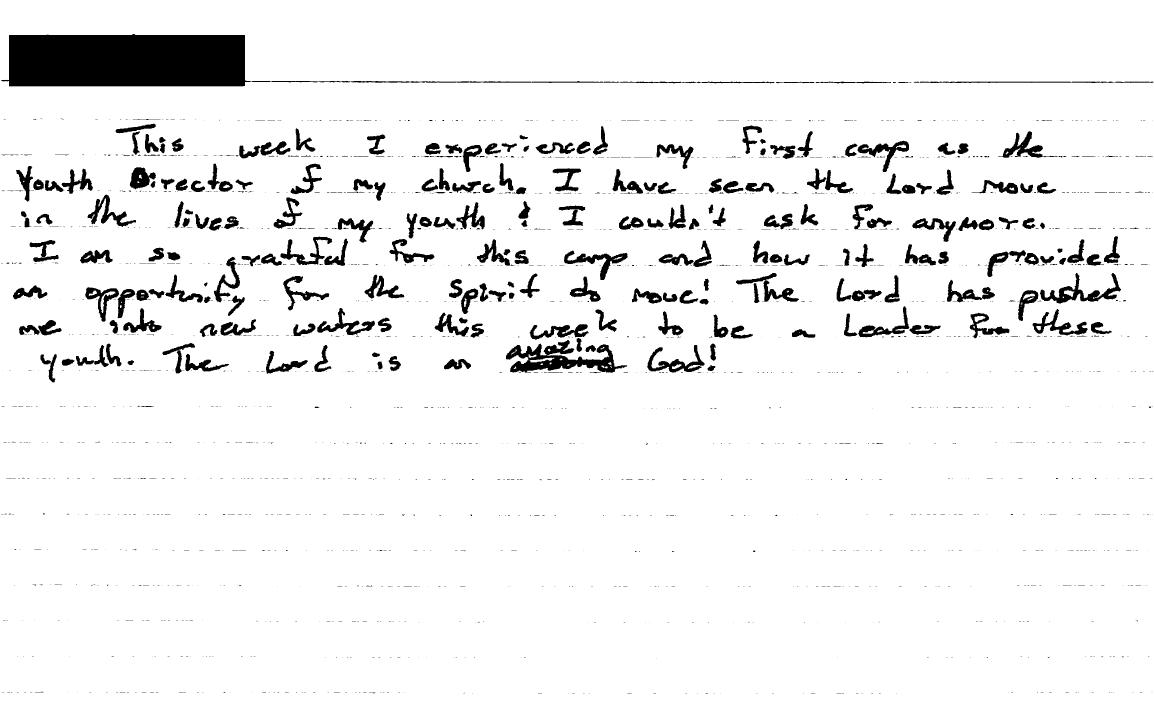 This week I experienced my first camp as the
Youth Director of my church. I have seen the Lord move
in the lives of my youth & I couldn't ask for anymore.
I am so grateful for this camp and how it has provided
an opportunity for the Spirit do move! The Lord has pushed
me into new waters this week to be a Leader for these
youth. The Lord is an amazing God!